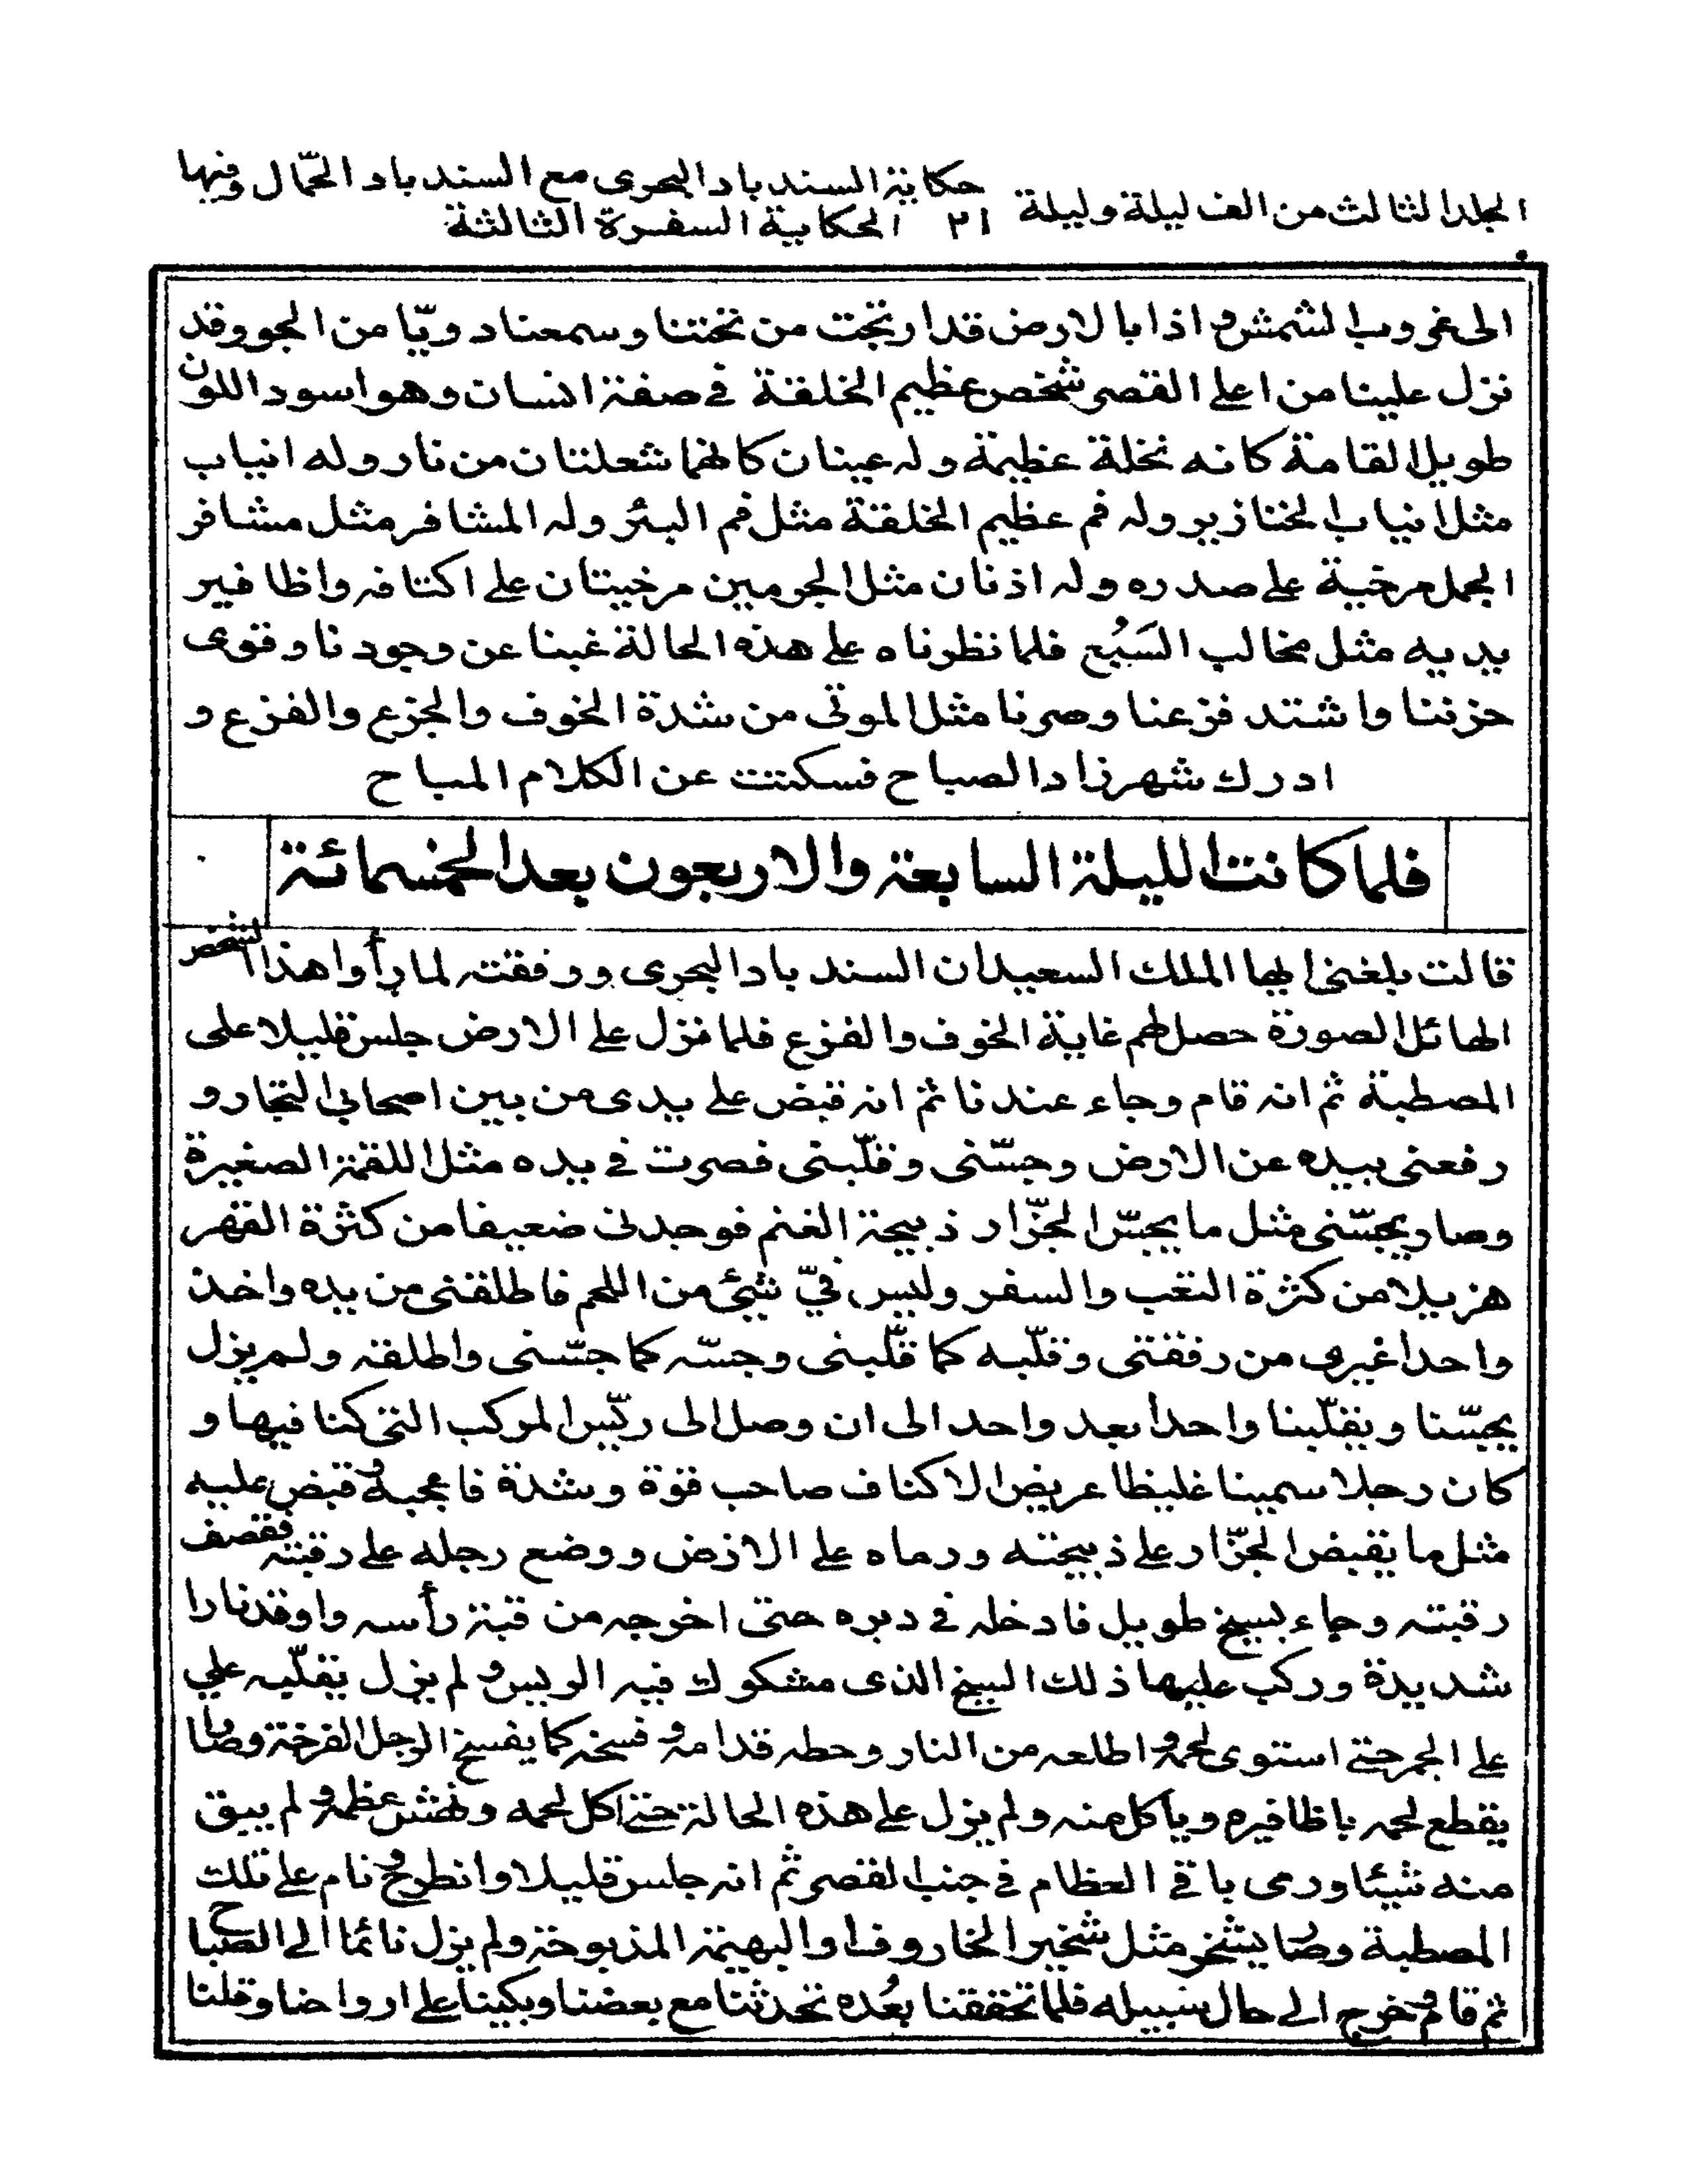 المجلد الثالث من الف ليلة وليلة ٢١ حكاية السندباد البحرى مع السندباد الحمّال وفيها
الحكاية السفرة الثالثة
الى غروب الشمش و اذا بالارض قد ارتجت من تختنا وسمعنا دويّا من الجو وقد
نزل علينا من اعلى القصر شخص عظيم الخلقة فى صفة انسان وهو اسود اللون
طويل القامة كانه نخلة عظيمة وله عينان كانهما شعلتان من نار وله انياب
مثل انياب الخنازير وله فم عظيم الخلقة مثل فم البئر وله المشافر مثل مشافر
الجمل مرخية على صدره وله اذنان مثل الجرمين مرخيتان على اكتافه واظافير
يديه مثل مخالب السَبُع فلما نظرناه على هذه الحالة غبنا عن وجودنا وقوى
حزننا واشتد فزعنا وصرنا مثل الموتى من شدة الخوف والجزع والفزع و
ادرك شهرزاد الصباح فسكتت عن الكلام المباح
فلما كانت الليلة السابعة والاربعون بعد الخمسمائة
قالت بلغنى ايها الملك السعيد ان السندباد البحرى ورفقته لما رأوا هذا الشخص
الهائل الصورة حصل لهم غاية الخوف والفزع فلما نزل على الارض جلس قليلا على
المصطبة ثم انه قام وجاء عندنا ثم انه قبض على يدى من بين اصحابى التجار و
رفعنى بيده عن الارض وجسّنى وقلّبنى فصرت فى يده مثل اللقمة الصغيرة
وصار يجسّنى مثل ما يجسّ الجزّار ذبيحة الغنم فوجدنى ضعيفا من كثرة القهر
هزيلا من كثرة التعب والسفر وليس فيّ شئ من اللحم فاطلقنى من يده واخذ
واحدا غيرى من رفقتى وقلّبه كما قلّبنى وجسّه كما جسّنى واطلقه ولم يزل
يجسّنا ويقلّبنا واحداً بعد واحد الى ان وصل الى ريّس المركب التى كنا فيها و
كان رجلا سمينا غليظا عريض الاكتاف صاحب قوة وشدة فاعجبه و قبض عليه
مثل ما يقبض الجزّار على ذبيحته ورماه على الارض ووضع رجله على رقبته فقصف
رقبته وجاء بسيخ طويل فادخله فى دبره حتى اخرجه من قبة رأسه واوقد نارا
شديدة وركب عليها ذلك السيخ الذى مشكوك فيه الريس و لم يزل يقلّبه علي
على الجمر حتى استوى لحمه و اطلعه من النار وحطه قدامه و فسخه كما يفسخ الرجل الفرخة وصار
يقطع لحمه باظافيره وياكل منه ولم يزل على هذه الحالة حتى اكل لحمه ونهش عظمه و لم يبق
منه شيئا ورمى باقى العظام فى جنب القصر ثم انه جلس قليلا وانطرح و نام على تلك
المصطبة وصار يشخر مثل شخير الخاروف او البهيمة المذبوحة ولم يزل نائما الى الصباح
ثم قام و خرج الى حال سبيله فلما تحققنا بعُده تحدثنا مع بعضنا وبكينا على ارواحنا وقلنا